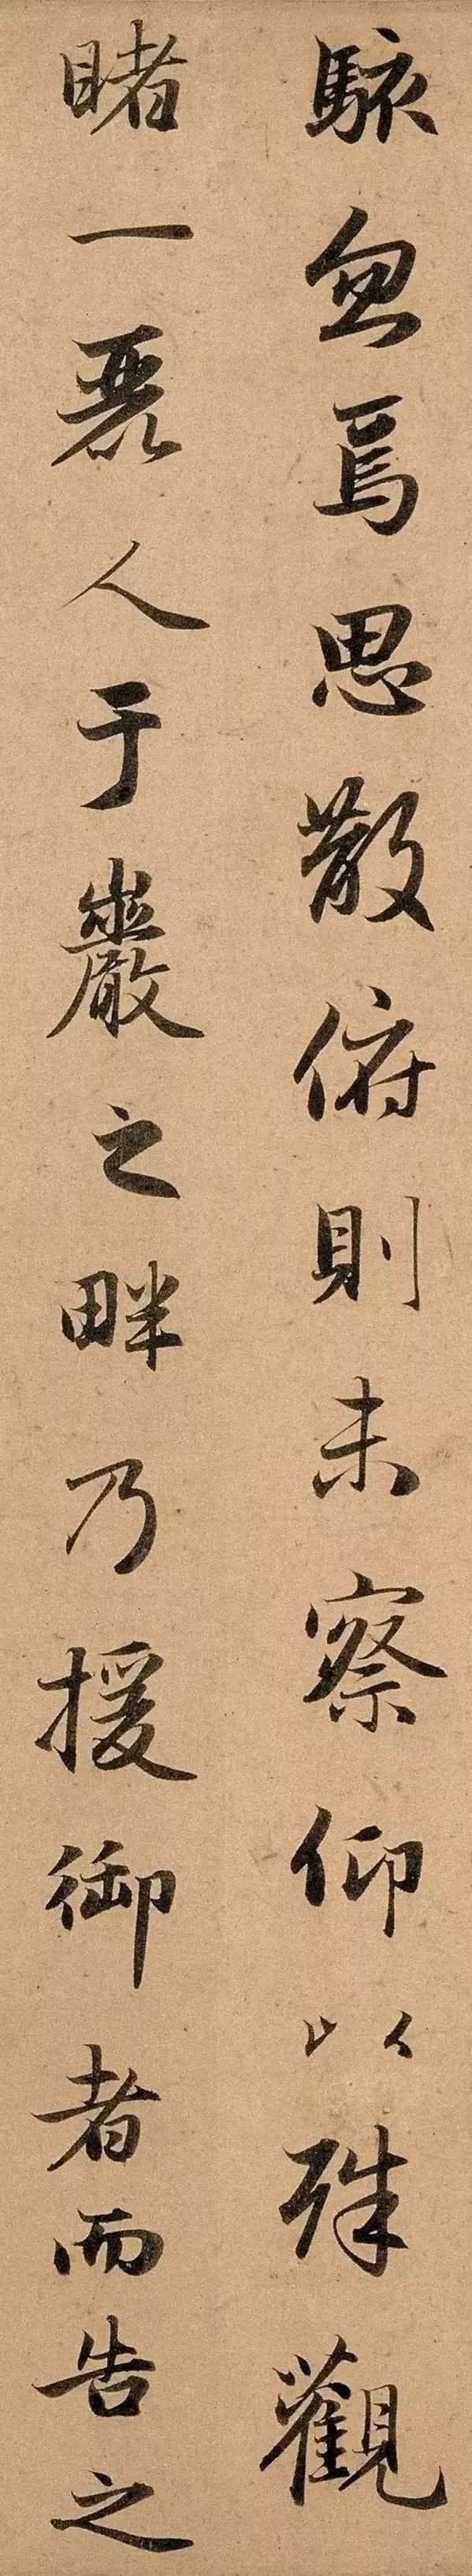 駭忽焉思散俯則未察仰以殊觀
睹一麗人于巖之畔乃援御者而告之